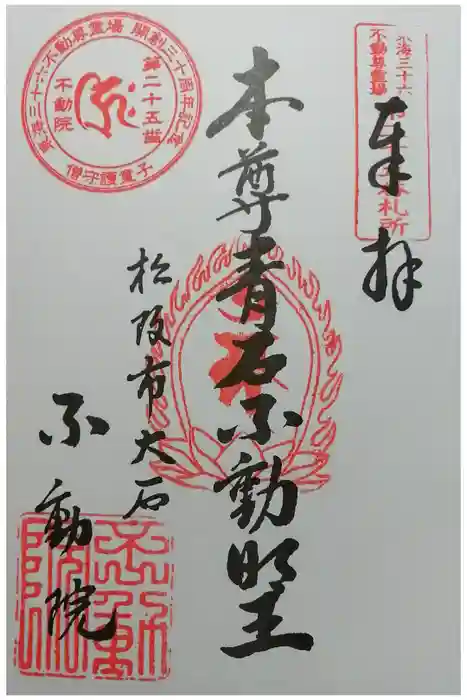 奉拝
東海三十六
不動尊霊場
第二十五番札所
本尊青石不動明王
松阪市大石
不動院
東海三十六不動尊霊場 開創三十周年記念
第二十五番
不動院
僧守護童子
不動院